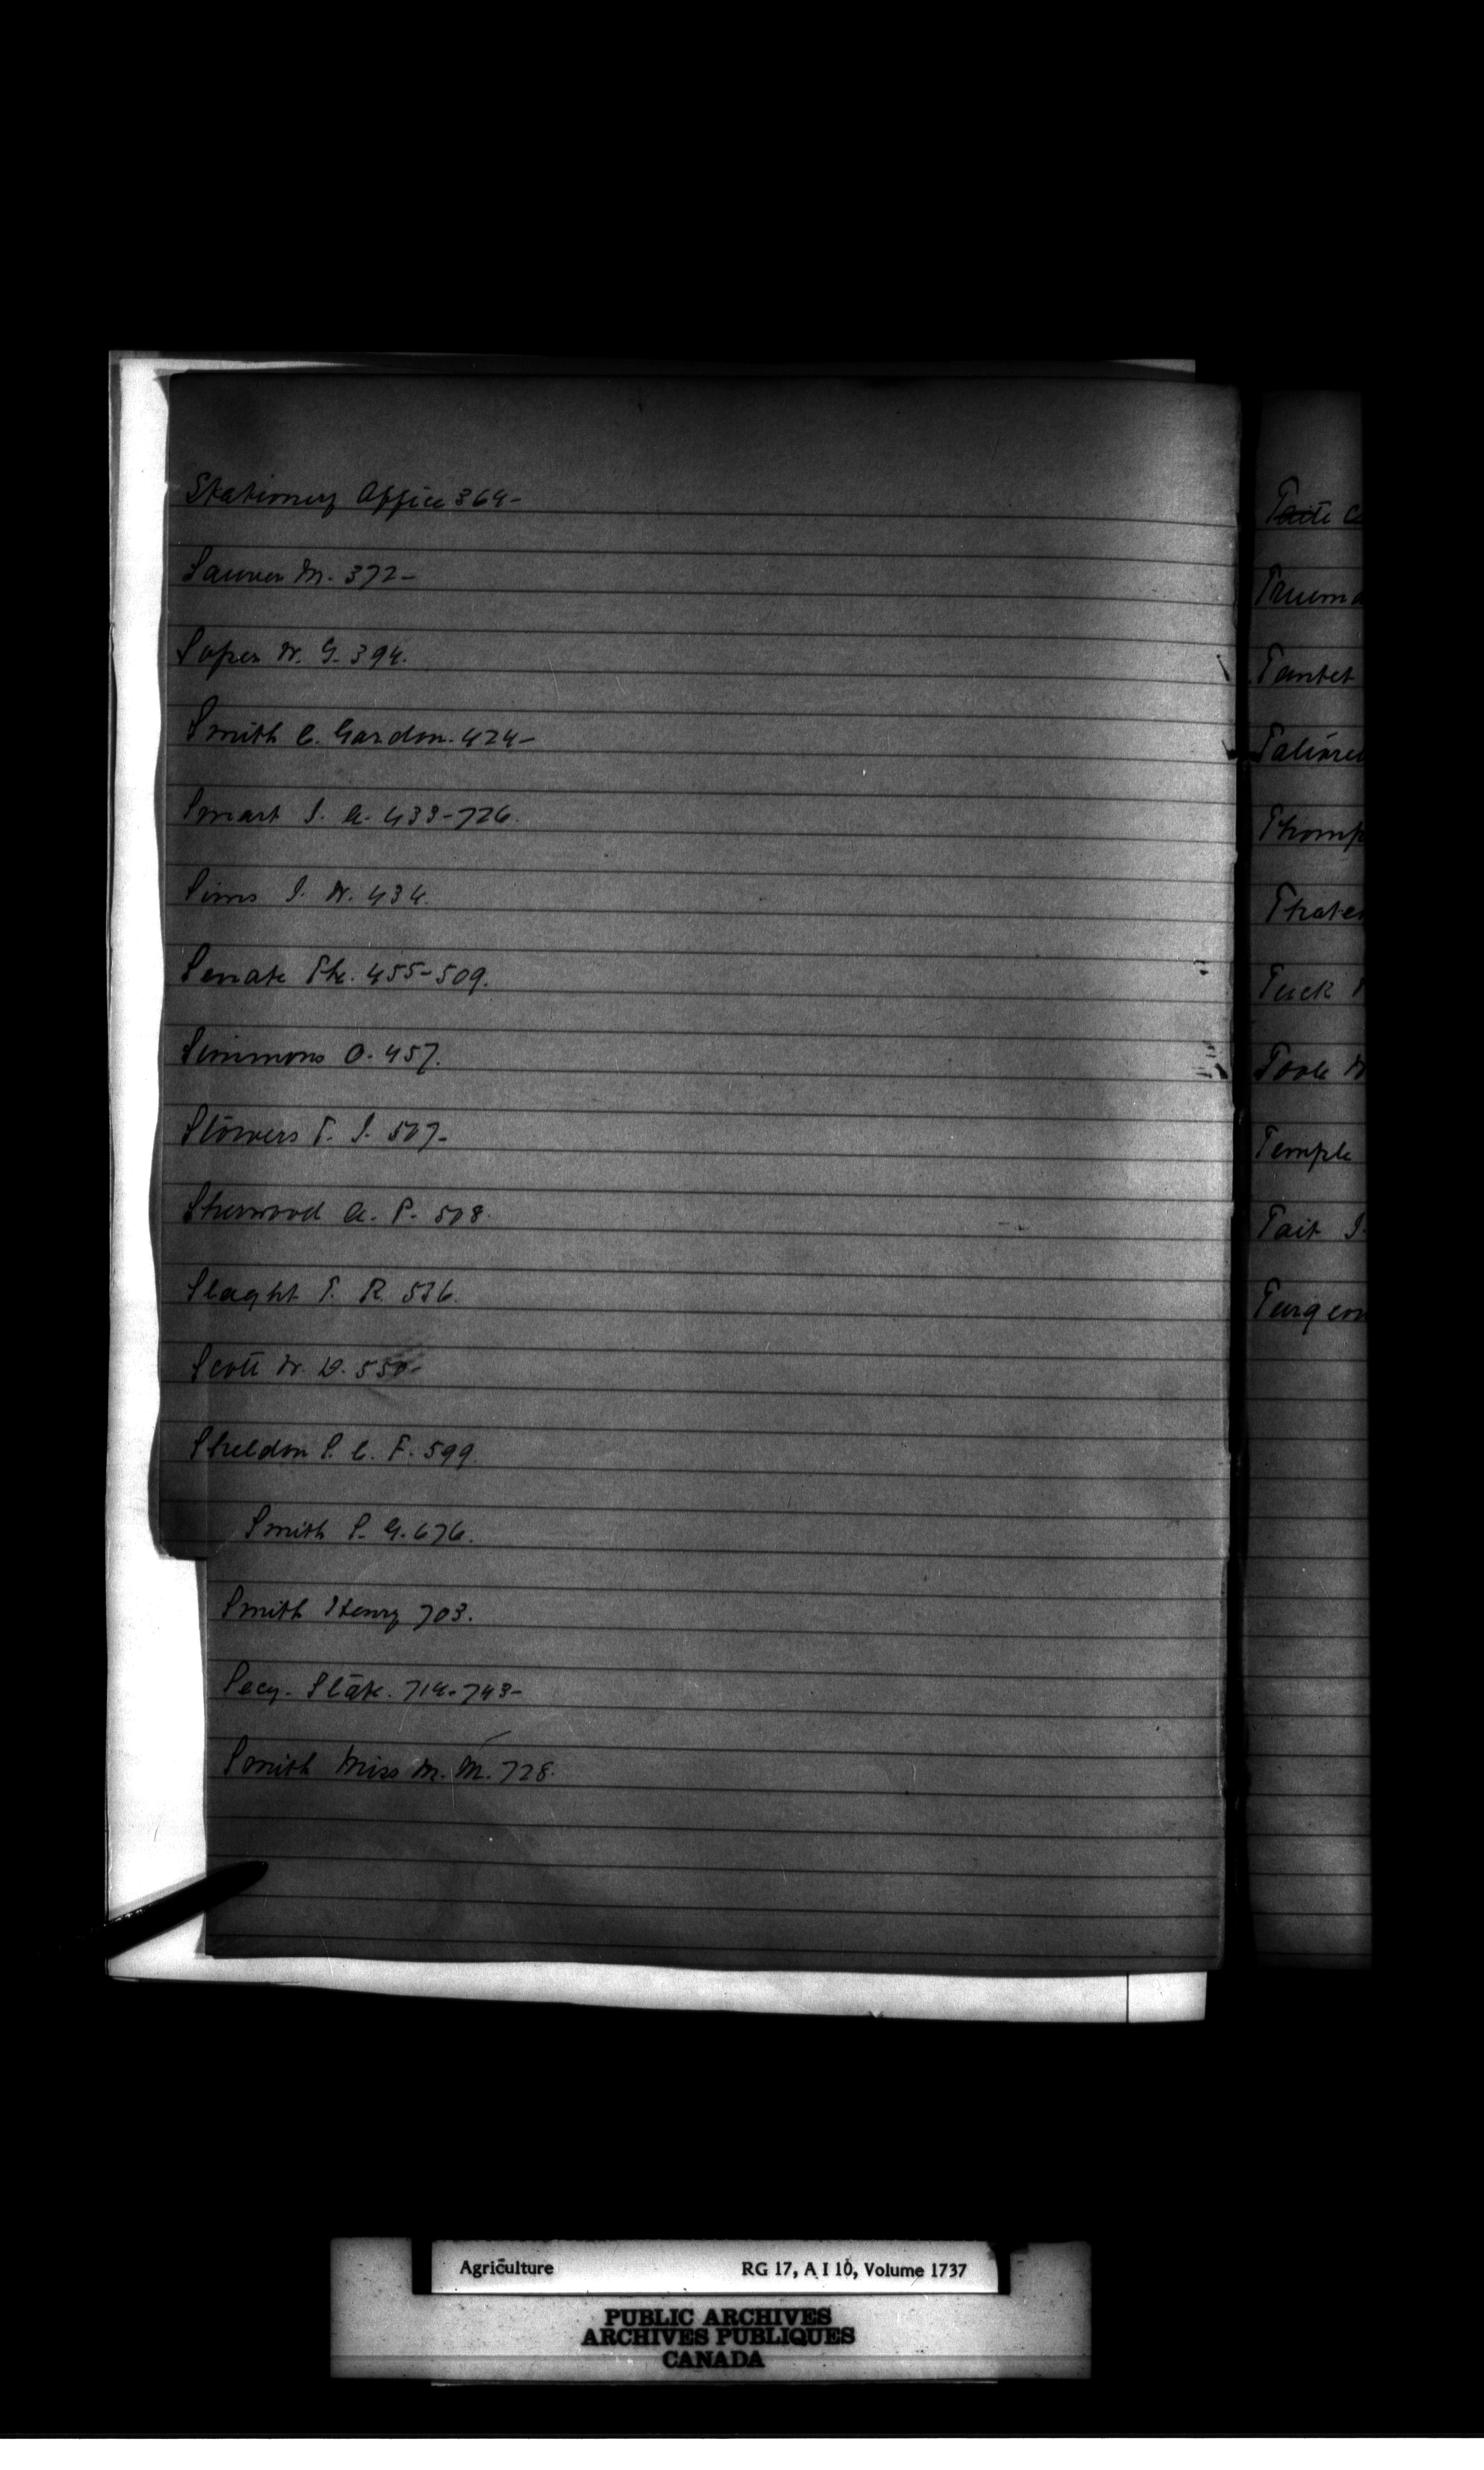 Stationery Office 364-
Sauver M. 372-
Soper W. G. 394.
Smith C. Gordon. 424-
Smart J. A. 433-726.
Sims J. W. 434.
Senate The. 455-509.
Simmons O. 457.
Stowers T. J. 507-
Sherwood A. P. 508.
Slaght T. R. 536.
Scott W. D. 550-
Sheldon S. C. F. 599.
Smith S. G. 676.
Smith Henry 703.
Secy. State. 714-743-
Smith Miss M. M. 728.
Truema
Tantet
Thomp
Thater
Tuck
Took W
Temple
Tait J.
Turgeon
Agriculture RG 17, A I 10, Volume 1737
PUBLIC ARCHIVES
ARCHIVES PUBLIQUES
CANADA